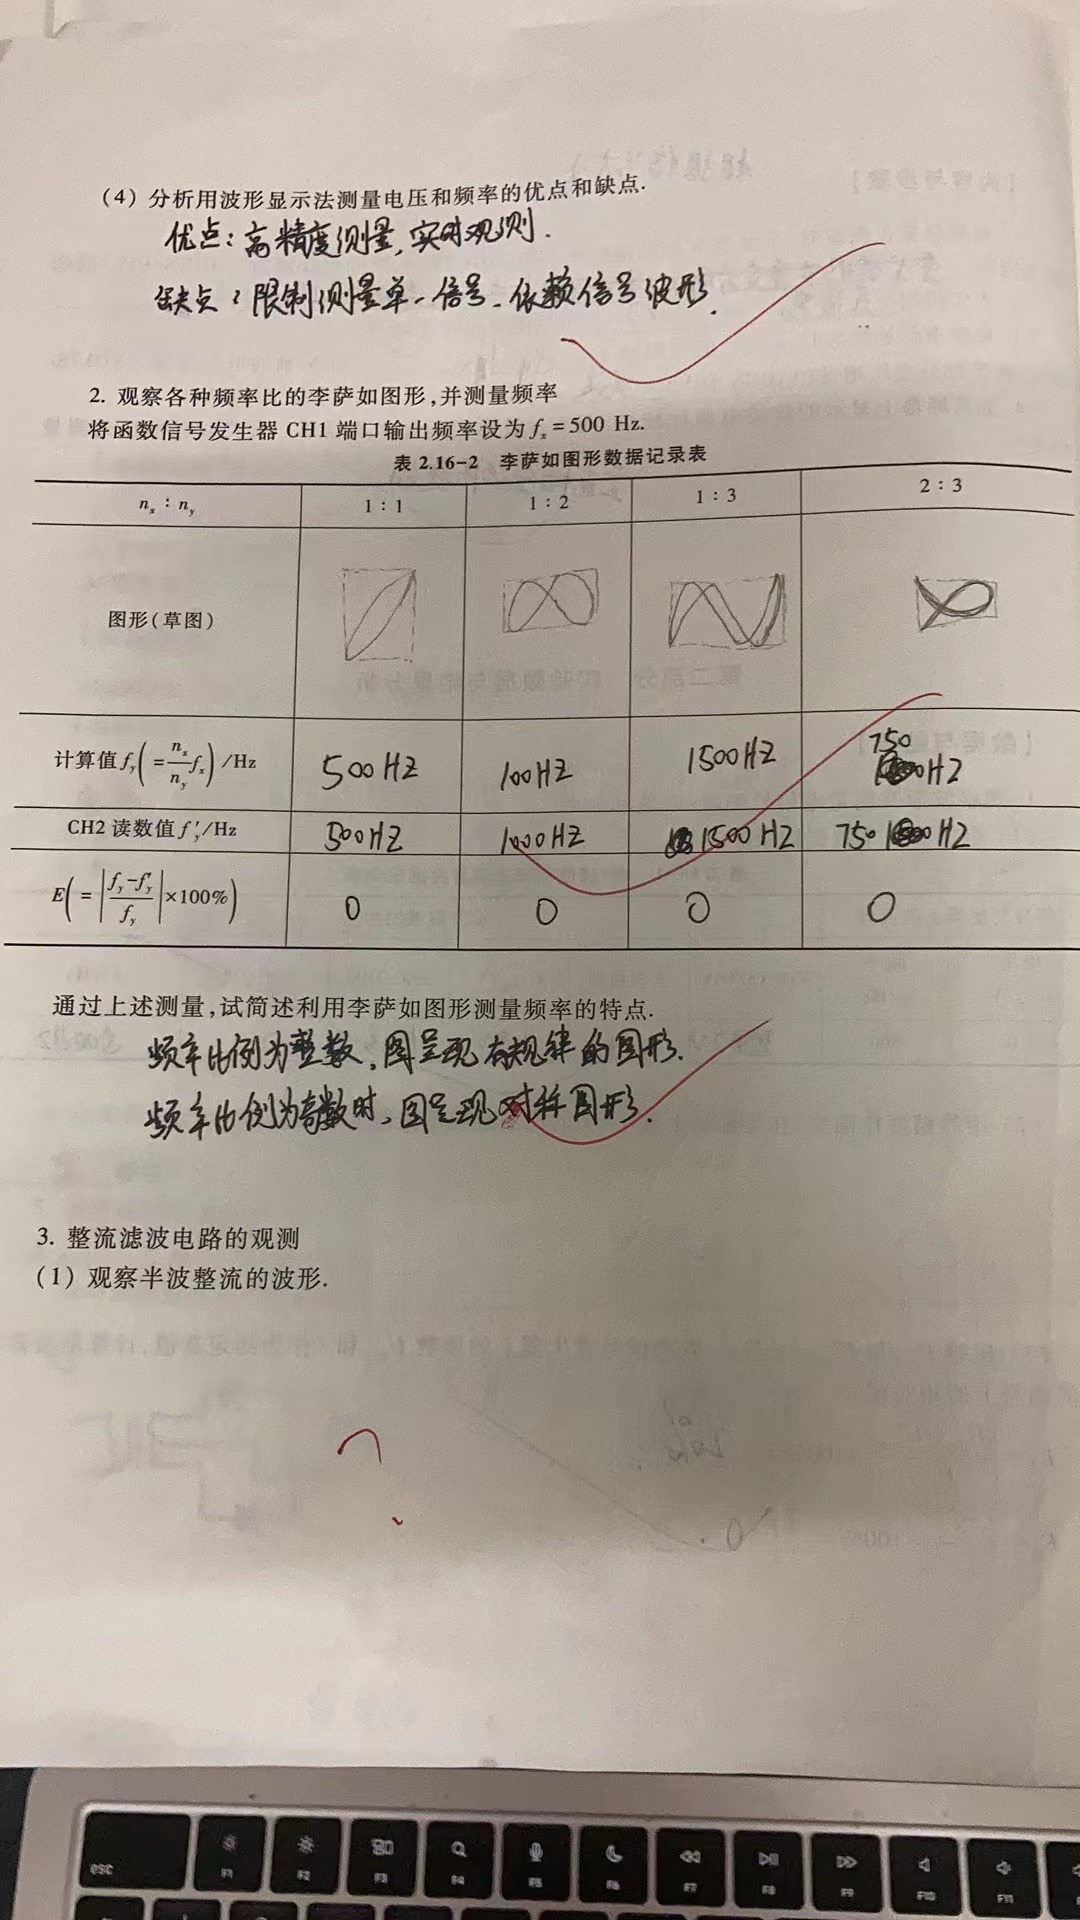 （4）分析用波形显示法测量电压和频率的优点和缺点.
优点：高精度测量，实时观测.
缺点：限制测量单一信号、依赖信号波形.
2. 观察各种频率比的李萨如图形，并测量频率
将函数信号发生器 CH1 端口输出频率设为 fx = 500 Hz.
表 2.16-2 李萨如图形数据记录表
nx : ny 1 : 1 1 : 2 1 : 3 2 : 3
图形（草图）
计算值 fy(= nx/ny fx) /Hz 500HZ 100HZ 1500HZ 750 HZ
CH2 读数值 f'y/Hz 500HZ 1000HZ 1500HZ 750 HZ
E(= |fy-f'y/fy| ×100%) 0 0 0 0
通过上述测量，试简述利用李萨如图形测量频率的特点.
频率比例为整数，图呈现有规律的图形.
频率比例为奇数时，图呈现对称图形.
3. 整流滤波电路的观测
（1）观察半波整流的波形.
?
esc F1 F2 F3 F4 F5 F6 F7 F8 F9 F10 F11